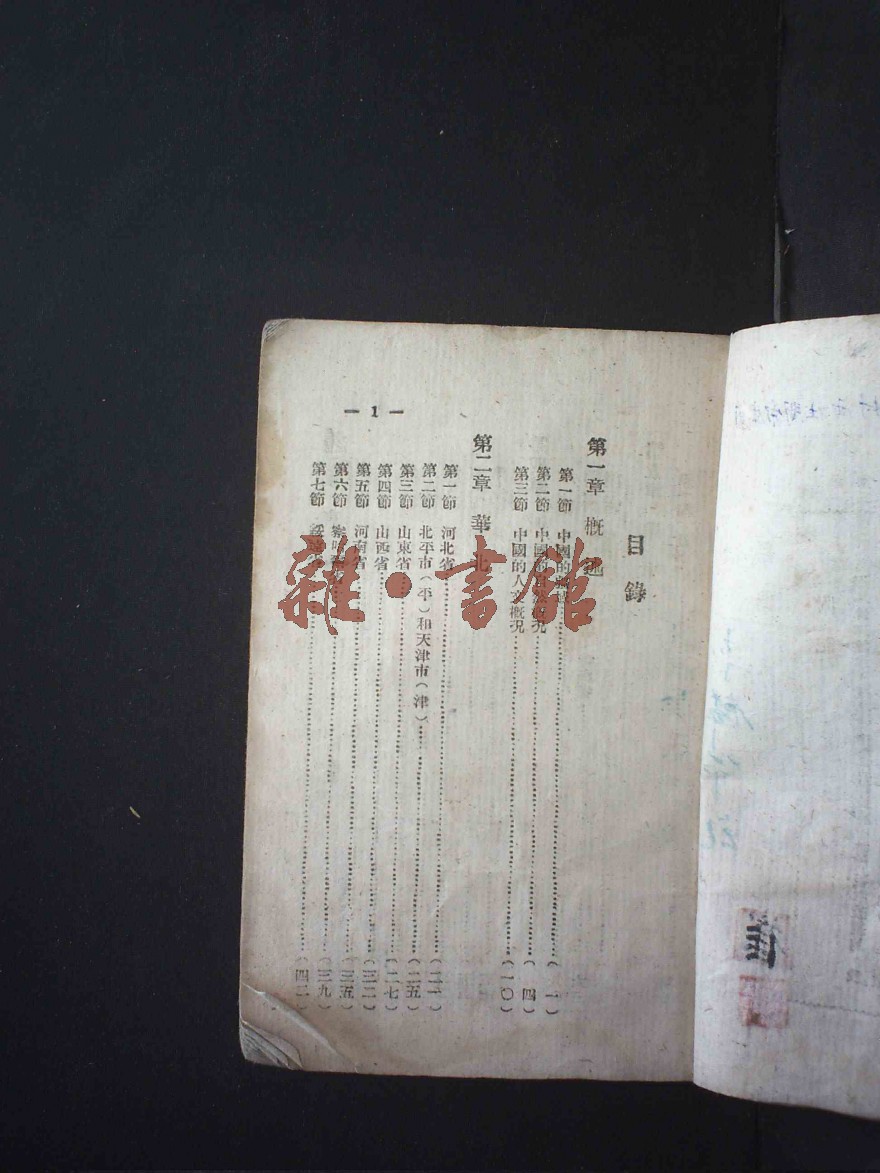 目錄
第一章 概述
第一節 中國的疆域（一）
第二節 中國的自然概況（四）
第三節 中國的人文概況（一〇）
第二章 華北
第一節 河北省（二一）
第二節 北平市（平）和天津市（津）（二五）
第三節 山東省（二七）
第四節 山西省（三二）
第五節 河南省（三五）
第六節 察哈爾省（三九）
第七節 綏遠省（四二）
— 1 —
雜·書館